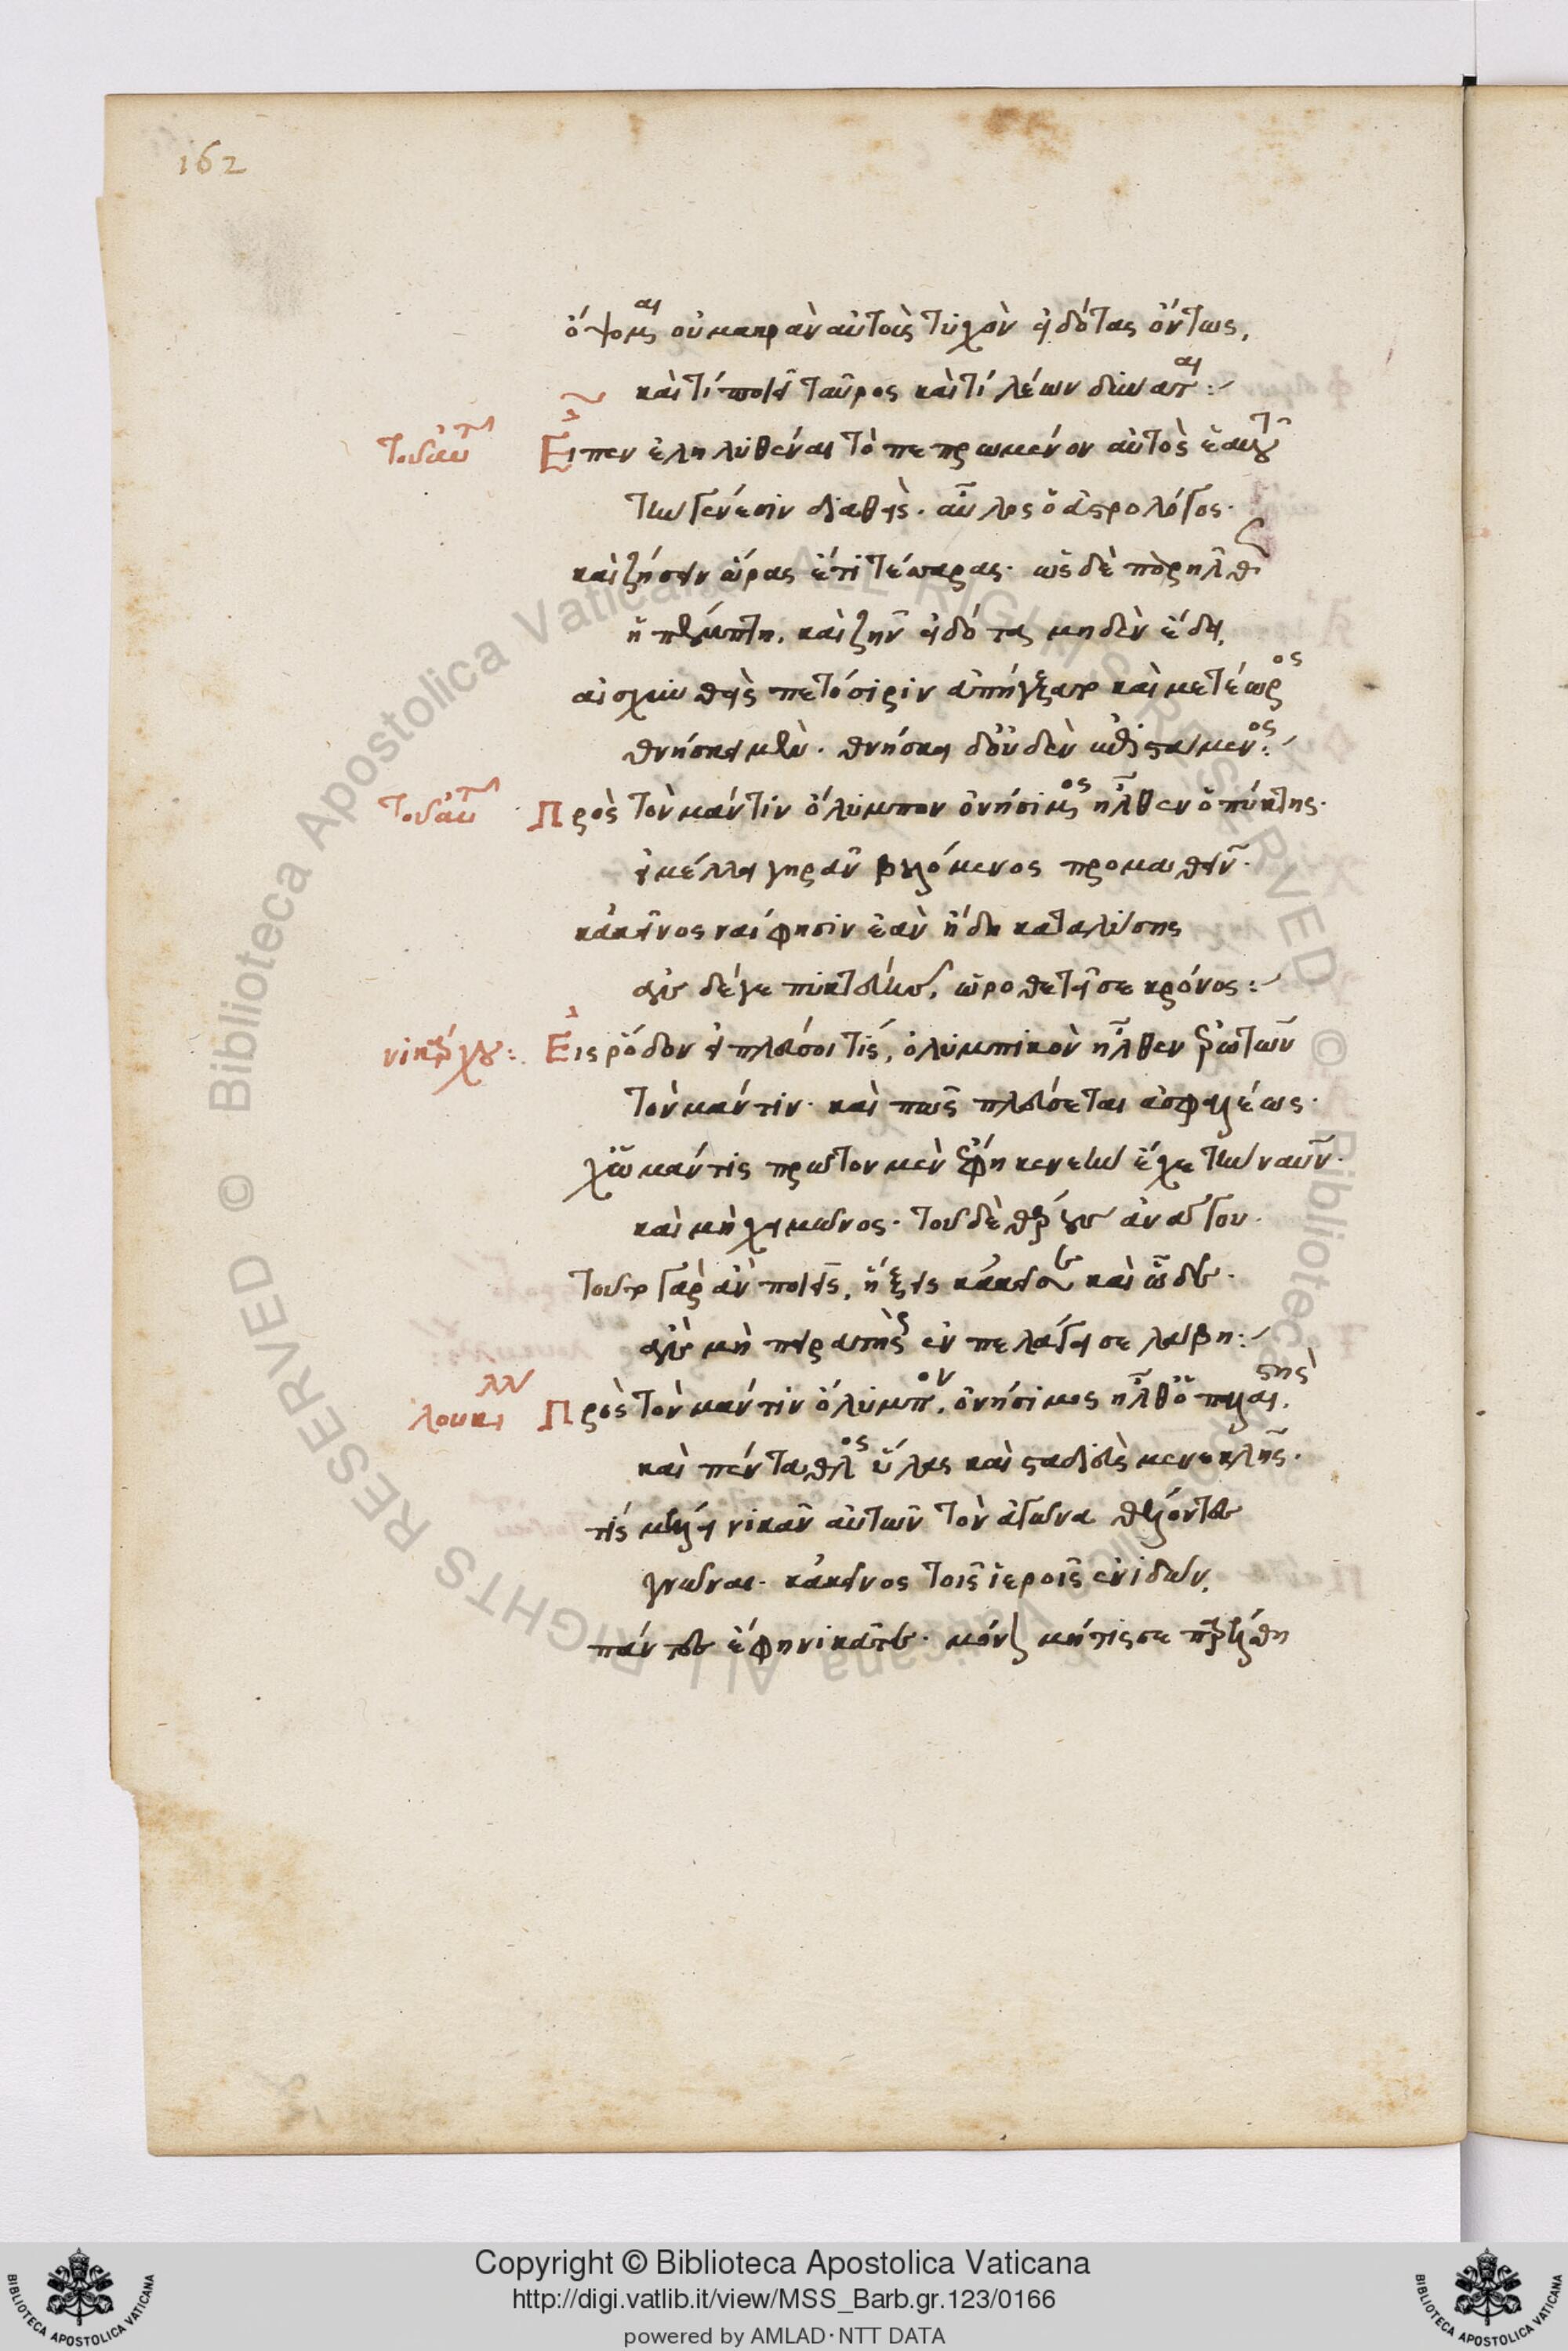 162
ὄψομαι οὐ μακρὰν αὐτοὺς τυχὸν εἰδότας ὄντως,
καὶ τί ποιεῖ ταῦρος καὶ τί λέων δύναται:
τοῦ αὐτοῦ Εἶπεν ἐληλυθέναι τὸ πεπρωμένον αὐτὸς ἑαυτοῦ
τὴν γένεσιν διαθεὶς. αὖλος ὁ ἀστρολόγος.
καὶ ζήσειν ὥρας ἔτι τέσσαρας. ὡς δὲ παρῆλθεν
ἡ πέμπτη, καὶ ζῆν εἰδότα μηδὲν ἔδει,
αἰσχυνθεὶς πετόσιριν ἀπήγξατο καὶ μετέωρος
θνήσκει μὲν. θνήσκει δ' οὐδὲν ἐπιστάμενος:
τοῦ αὐτοῦ Πρὸς τὸν μάντιν ὄλυμπον ὀνήσιμος ἦλθεν ὁ πύκτης.
εἰ μέλλει γηρᾶν βουλόμενος προμαθεῖν.
κἀκεῖνος ναί φησιν ἐὰν ἤδη καταλύσης
ἂν δέ γε πυκτεύης, ὡροθετεῖ σε κρόνος:
νικάρχου: Εἰς ῥόδον εἰ πλεύσοι τίς, ὀλυμπικὸν ἦλθεν ἐρωτῶν
τὸν μάντιν. καὶ πῶς πλεύσεται ἀσφαλέως.
χὡ μάντις πρῶτον μὲν ἔφη καινὴν ἔχε τὴν ναῦν.
καὶ μὴ χειμῶνος. τοῦ δὲ θέρους ἀνάγου.
τοῦτο γὰρ ἂν ποιῇς, ἥξεις κἀκεῖσε καὶ ὧδε.
ἂν μὴ πειρατὴς ἐν πελάγει σε λάβη:
λουκιλλ Πρὸς τὸν μάντιν ὄλυμπον, ὀνήσιμος ἦλθ' ὁ παλαιστὴς,
καὶ πένταθλος ὕλας καὶ σταδιεὺς μενεκλῆς.
τίς μέλλει νικᾶν αὐτῶν τὸν ἀγῶνα θέλοντες
γνῶναι. κἀκεῖνος τοῖς ἱεροῖς ἐνιδὼν,
πάντες ἔφη νικᾶτε. μόνον μή τις σε παρέλθη
Copyright © Biblioteca Apostolica Vaticana
http://digi.vatlib.it/view/MSS_Barb.gr.123/0166
powered by AMLAD·NTT DATA